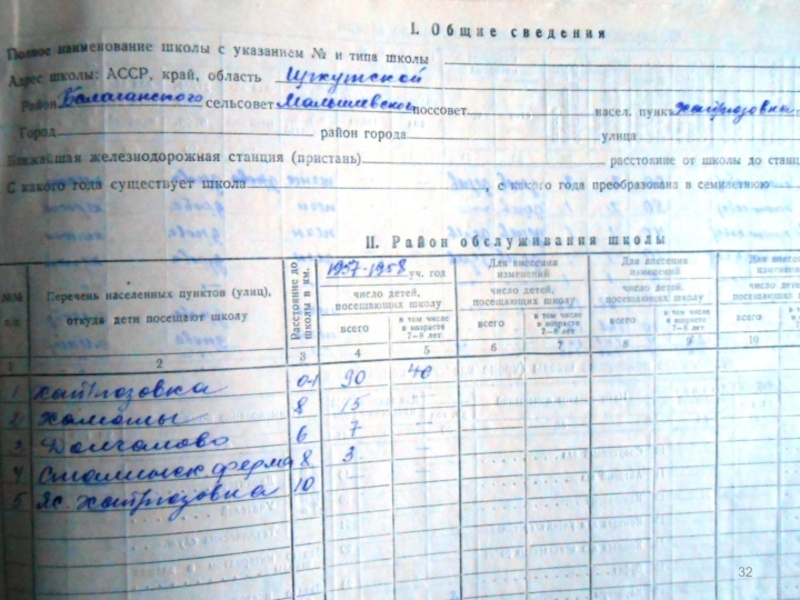 I. Общие сведения
Полное наименование школы с указанием № и типа школы
Адрес школы: АССР, край, область Иркутской
Район Балаганского сельсовет Малышевское поссовет насел. пункт Хатрозовка
Город район города улица
Ближайшая железнодорожная станция (пристань) расстояние от школы до станц
С какого года существует школа , с какого года преобразована в семилетнюю
II. Район обслуживания школы
№№ п/п
Перечень населенных пунктов (улиц), откуда дети посещают школу
Расстояние до школы в км.
1957-1958 уч. год
число детей, посещающих школу
всего
в том числе в возрасте 7—8 лет
Для внесения изменений
число детей, посещающих школу
всего
в том числе в возрасте 7—8 лет
Для внесения изменений
число детей, посещающих школу
всего
в том числе в возрасте 7—8 лет
Для внесен
число дете
посещающих
всего
1 2 3 4 5 6 7 8 9 10
1 0-1 90 40
2 8 15 —
3 6 7 —
4 ферма 8 3 —
5 Хатрозовка 10 — —
32